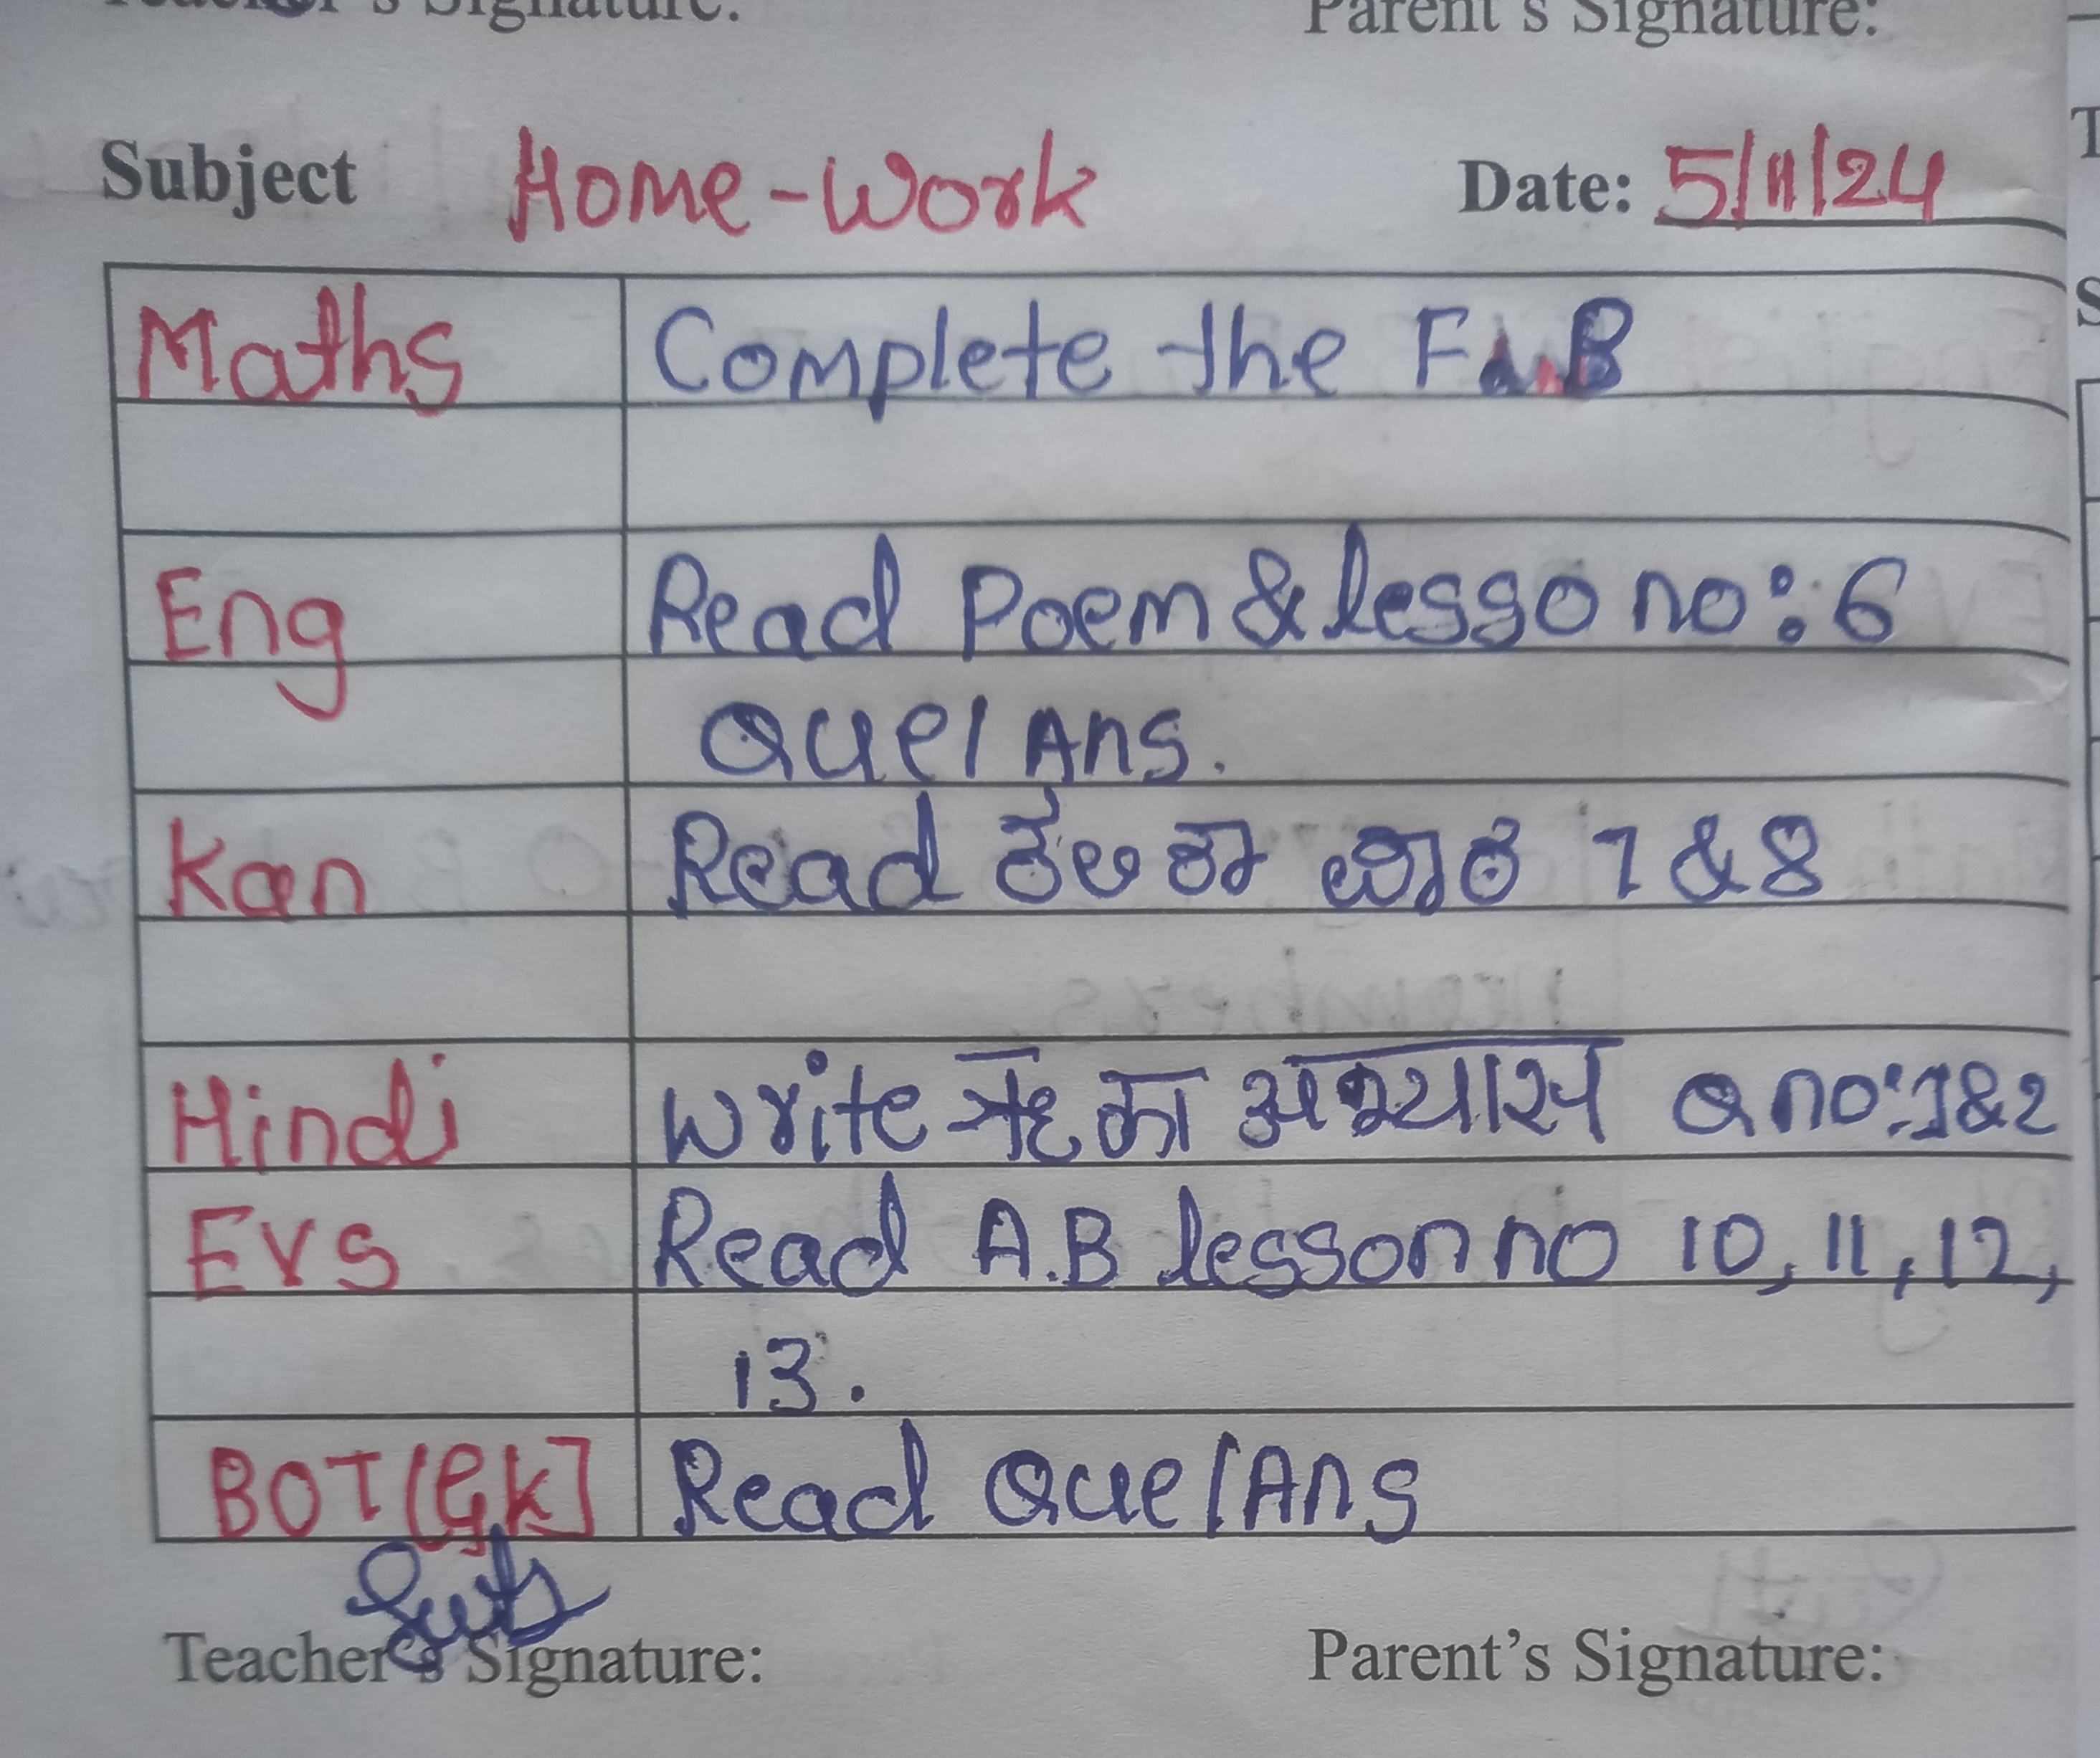 Teacher's Signature: Parent's Signature:
Subject Home-Work Date: 5/11/24
Maths Complete the F B
Eng Read Poem & lesso no: 6
Que/Ans.
Kan Read ಕಲಿಕಾ ಪಾಠ 7 & 8
Hindi Write ऋ का अभ्यास Q no: 1&2
EVS Read A.B lesson no 10, 11, 12,
13.
BOT[GK] Read Que/Ans
Teacher's Signature: Parent's Signature: